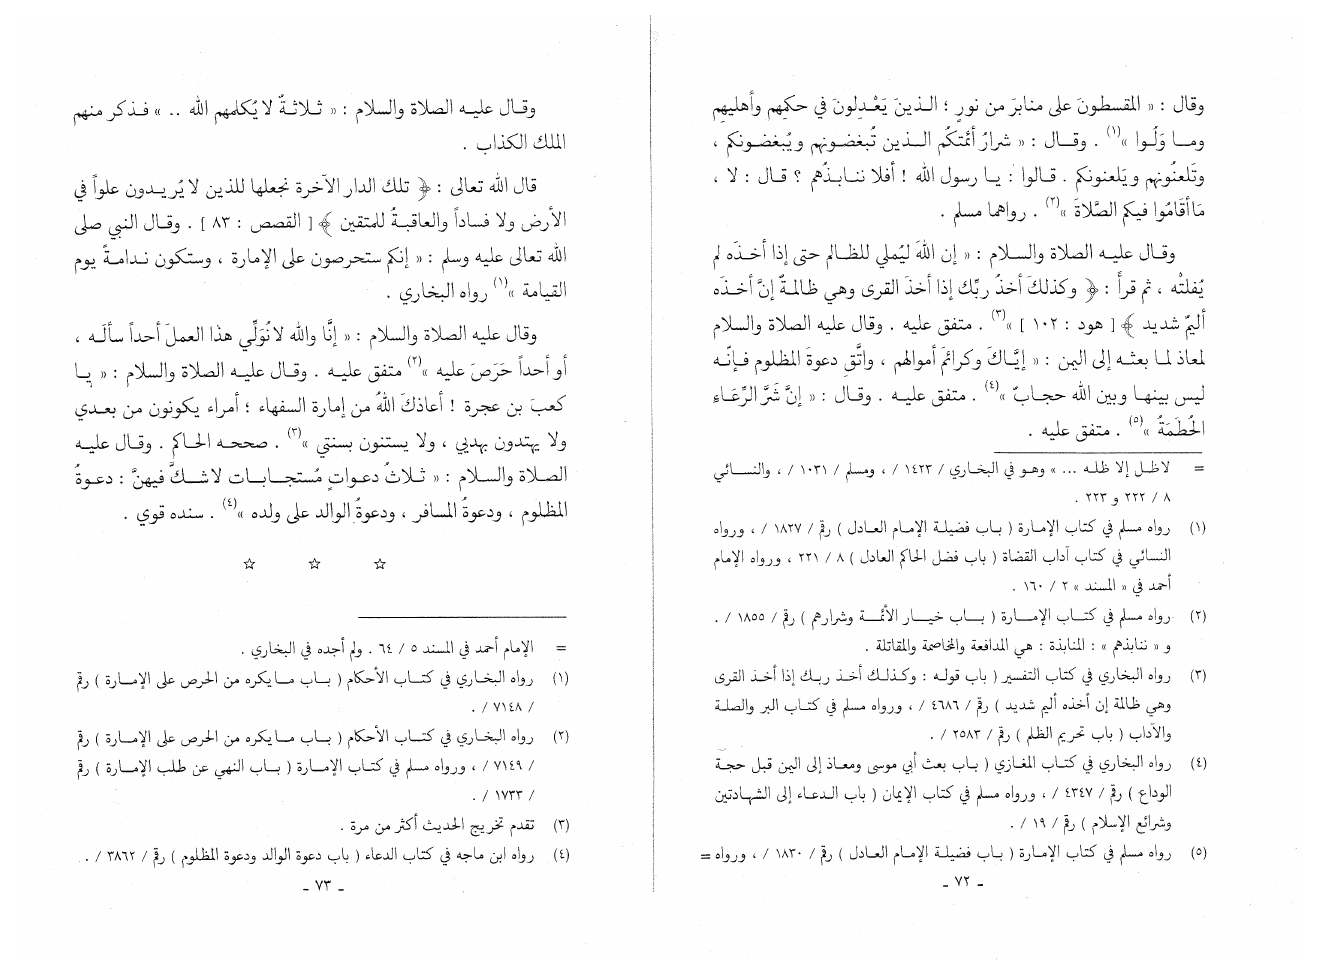 وقال : « المقسطونَ على منابرَ من نورٍ ؛ الـذينَ يَعْـدِلونَ في حكمِهم وأهليهِم
ومـا وَلُـوا »(١) . وقـــال : « شرارُ أئمّتكُم الـــذين تُبغضـونهم ويُبغضـونكم ،
وتَلعنُونهم ويَلعنونكم . قـالوا : يـا رسول الله ! أفلا ننـابـذُهم ؟ قـال : لا ،
مَا أقَامُوا فيكم الصَّلاةَ »(٢) . رواهما مسلم .
وقـال عليـه الصلاة والسـلام : « إن اللهَ ليُملي للظـالم حتى إذا أخـذَه لم
يُفلتْه ، ثم قرأ : ﴿ وكذلكَ أخذُ ربِّك إذا أخذَ القرى وهي ظـالمـةٌ إنَّ أخـذَه
أليمٌ شديد ﴾ [ هود : ١٠٢ ] »(٣) . متفق عليه . وقال عليه الصلاة والسلام
لمعاذ لمـا بعثـه إلى اليمن : « إيَّـاكَ وكرائمَ أموالهم ، واتَّقِ دعوةَ المظلوم فـإنَّـه
ليس بينهـا وبين الله حجـابٌ »(٤) . متفق عليـه . وقـال : « إنَّ شَرَّ الرِّعَـاءِ
الحُطَمَةُ »(٥) . متفق عليه .
= لاظـل إلا ظلـه ... » وهـو في البخـاري / ١٤٢٣ / ، ومسلم / ١٠٣١ / ، والنســائي
٨ / ٢٢٢ و ٢٢٣ .
(١) رواه مسلم في كتـاب الإمـارة ( بـاب فضيلـة الإمـام العـادل ) رقم / ١٨٢٧ / ، ورواه
النسائي في كتاب آداب القضاة ( باب فضل الحاكم العادل ) ٨ / ٢٢١ ، ورواه الإمام
أحمد في « المسند » ٢ / ١٦٠ .
(٢) رواه مسلم في كتــاب الإمــارة ( بــاب خيــار الأئمــة وشرارهم ) رقم / ١٨٥٥ / .
و « ننابذهم » : المنابذة : هي المدافعة والمخاصمة والمقاتلة .
(٣) رواه البخاري في كتاب التفسير ( باب قولـه : وكـذلـك أخـذ ربـك إذا أخـذ القرى
وهي ظالمة إن أخذه أليم شديد ) رقم / ٤٦٨٦ / ، ورواه مسلم في كتـاب البر والصلـة
والآداب ( باب تحريم الظلم ) رقم / ٢٥٨٣ / .
(٤) رواه البخاري في كتـاب المغـازي ( بـاب بعث أبي موسى ومعـاذ إلى اليمن قبل حجـة
الوداع ) رقم / ٤٣٤٧ / ، ورواه مسلم في كتاب الإيمان ( باب الـدعـاء إلى الشهـادتين
وشرائع الإسلام ) رقم / ١٩ / .
(٥) رواه مسلم في كتـاب الإمـارة ( بـاب فضيلـة الإمـام العـادل ) رقم / ١٨٣٠ / ، ورواه =
ـ ٧٢ ـ
وقـال عليـه الصلاة والسلام : « ثـلاثـةٌ لا يُكلمهم الله .. » فـذكر منهم
الملك الكذاب .
قال الله تعالى : ﴿ تلك الدار الآخرة نجعلها للذين لا يُريـدون علواً في
الأرض ولا فساداً والعاقبةُ للمتقين ﴾ [ القصص : ٨٣ ] . وقـال النبي صلى
الله تعالى عليه وسلم : « إنكم ستحرصون على الإمارة ، وستكون نـدامـةً يوم
القيامة »(١) رواه البخاري .
وقال عليه الصلاة والسلام : « إنَّا والله لا نُوَلِّي هذا العملَ أحداً سألَـه ،
أو أحداً حَرَصَ عليه »(٢) متفق عليـه . وقـال عليـه الصلاة والسلام : « يـا
كعبَ بن عجرة ! أعاذكَ اللهُ من إمارة السفهاء ؛ أمراء يكونون من بعـدي
ولا يهتدون بهديي ، ولا يستنون بسنتي »(٣) . صححـه الحـاكم . وقـال عليـه
الصـلاة والسـلام : « ثـلاثُ دعـواتٍ مُستجـابـات لاشـكَّ فيهنَّ : دعـوةُ
المظلوم ، ودعوةُ المسافر ، ودعوةُ الوالد على ولده »(٤) . سنده قوي .
☆ ☆ ☆
= الإمام أحمد في المسند ٥ / ٦٤ . ولم أجده في البخاري .
(١) رواه البخاري في كتـاب الأحكام ( بـاب مـا يكره من الحرص على الإمـارة ) رقم
/ ٧١٤٨ / .
(٢) رواه البخاري في كتـاب الأحكام ( بـاب مـا يكره من الحرص على الإمـارة ) رقم
/ ٧١٤٩ / ، ورواه مسلم في كتـاب الإمـارة ( بـاب النهي عن طلب الإمـارة ) رقم
/ ١٧٣٣ / .
(٣) تقدم تخريج الحديث أكثر من مرة .
(٤) رواه ابن ماجه في كتاب الدعاء ( باب دعوة الوالد ودعوة المظلوم ) رقم / ٣٨٦٢ / .
ـ ٧٣ ـ